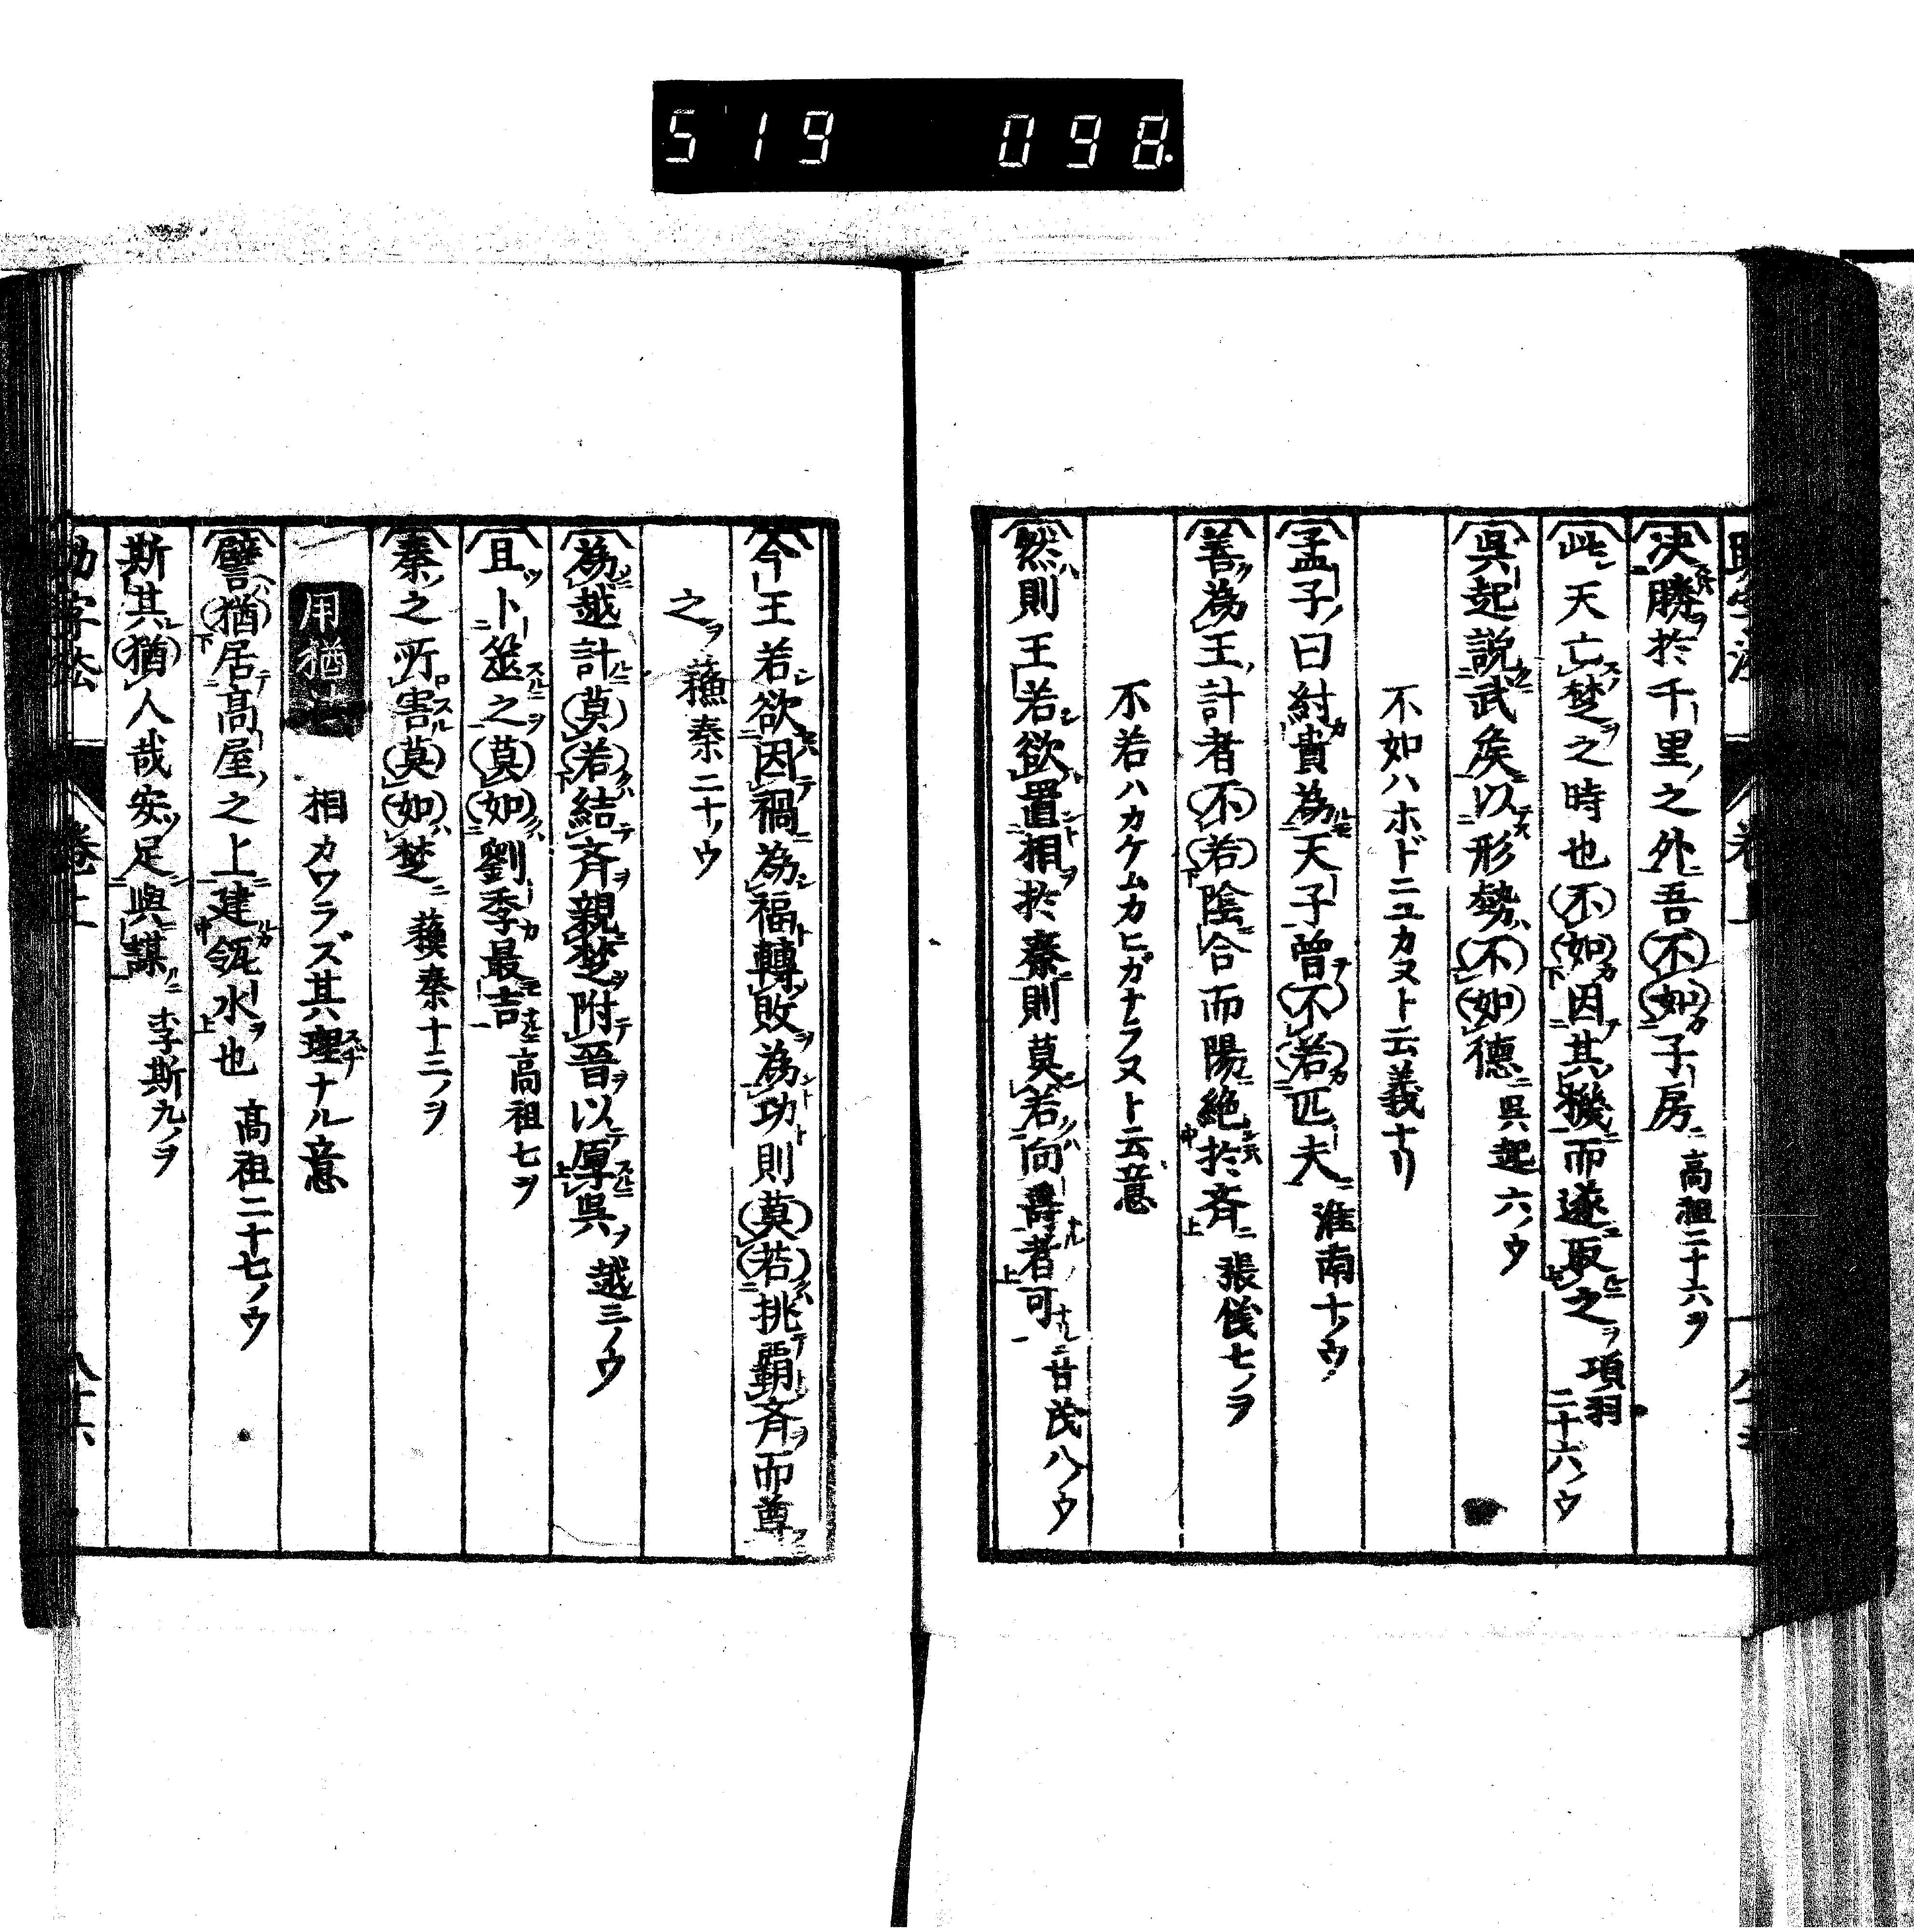 519 098.
決勝於千里之外吾不如子房 高祖二十六ヲ
此天亡楚之時也不如因其機而遂取之 項羽二十六ノウ
呉起説武侯以形勢不如德 呉起六ノウ
不如ハホドニユカヌト云義ナリ
孟子曰紂貴為天子曾不若匹夫 淮南十ノウ
善為王計者不若陰合而陽絶於斉 張儀七ノヲ
不若ハカケムカヒガナラヌト云意
然則王若欲置相於秦則莫若向壽者可 甘茂八ノウ
今王若欲因禍為福轉敗為功則莫若挑覇斉而尊
之 蘓秦二十ノウ
為越計莫若結斉親楚附晉以厚呉 越三ノウ
且卜筮之莫如劉季最吉 高祖七ヲ
秦之所害莫如楚 蘓秦十三ノヲ
用猶七 相カワラズ其理ナル意
譬猶居高屋之上建瓴水也 高祖二十七ノウ
斯其猶人哉安足與謀 李斯九ノヲ